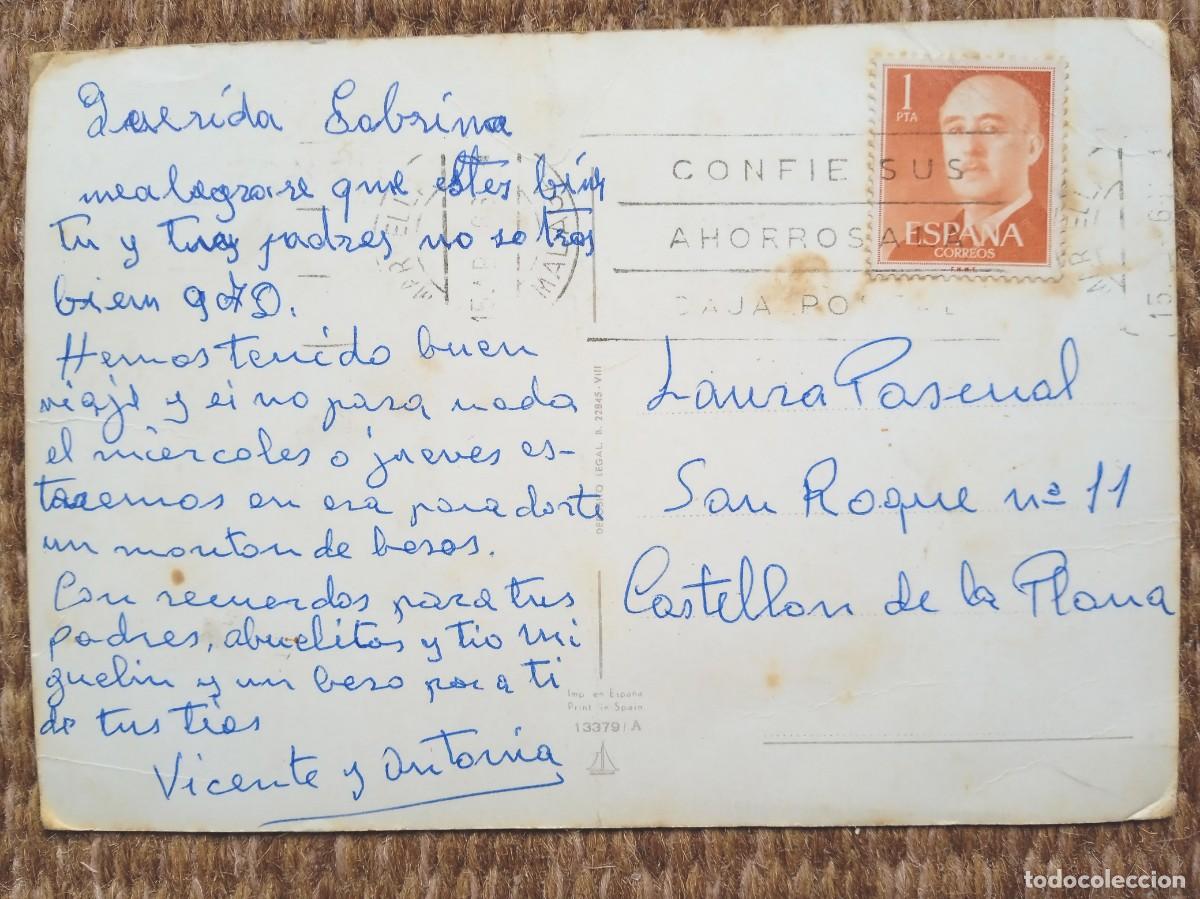 Querida Sobrina
me alegrare que estes bien
tu y tus padres nosotros
bien g.a.D.
Hemos tenido buen
viaje y si no pasa nada
el miercoles o jueves es-
taremos en esa para darte
un monton de besos.
Con recuerdos para tus
padres, abuelitos y tio mi
guelin y un beso para ti
de tus tios
Vicente y Antonia
1
PTA
ESPAÑA
CORREOS
F.N.M.T.
CONFIE SUS
AHORROS A LA
CAJA POSTAL
MALAGA
15 APR
Laura Pascual
San Roque nº 11
Castellon de la Plana
DEPOSITO LEGAL B. 22845-VIII
Imp. en España
Print in Spain
13379/A
todocoleccion